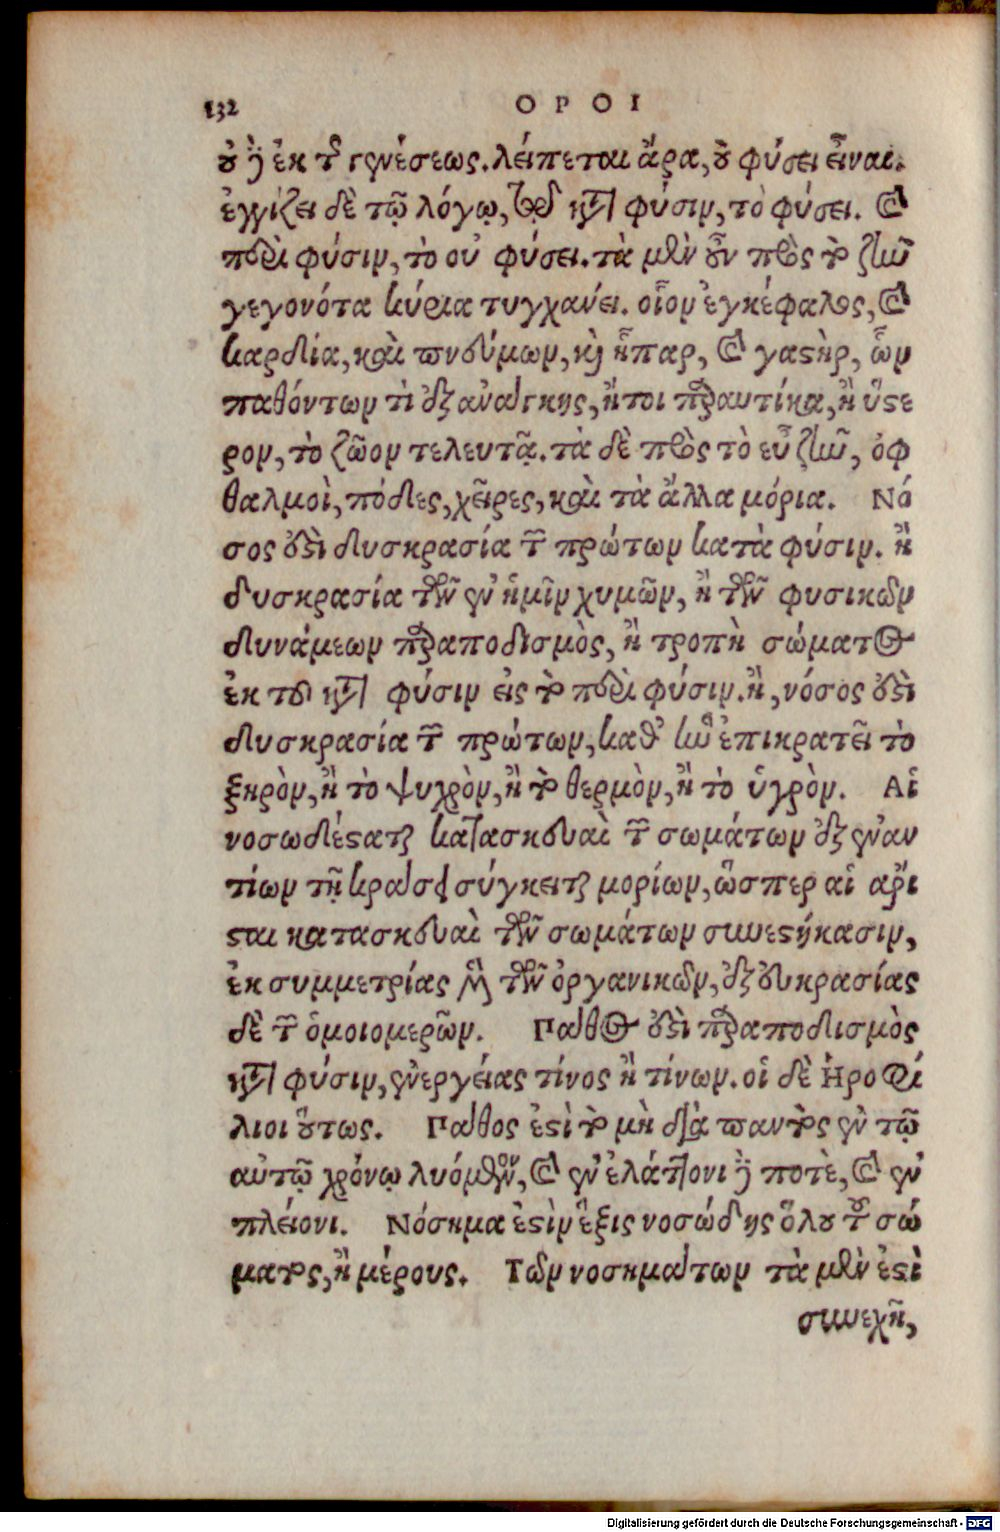 132 ΟΡΟΙ
οὐ δὲ ἐκ τῆς γενέσεως. λείπεται ἄρα, οὐ φύσει εἶναι.
ἐγγίζει δὲ τῷ λόγῳ, τῷ κατὰ φύσιν, τὸ φύσει. καὶ
παρὰ φύσιν, τὸ οὐ φύσει. τὰ μὲν οὖν πρὸς τὸ ζῆν
γεγονότα κύρια τυγχάνει. οἷον ἐγκέφαλος, καὶ
καρδία, καὶ πνεύμων, καὶ ἧπαρ, καὶ γαστὴρ, ὧν
παθόντων τὶ ἐξ ἀνάγκης, ἤτοι παραυτίκα, ἢ ὕστε
ρον, τὸ ζῶον τελευτᾷ. τὰ δὲ πρὸς τὸ εὖ ζῆν, ὀφ
θαλμοὶ, πόδες, χεῖρες, καὶ τὰ ἄλλα μόρια. Νό
σος ἐστὶ δυσκρασία τῶν πρώτων κατὰ φύσιν. ἢ
δυσκρασία τῶν ἐν ἡμῖν χυμῶν, ἢ τῶν φυσικῶν
δυνάμεων παραποδισμὸς, ἢ τροπὴ σώματος
ἐκ τοῦ κατὰ φύσιν εἰς τὸ παρὰ φύσιν. ἢ, νόσος ἐστὶ
δυσκρασία τῶν πρώτων, καθ' ἣν ἐπικρατεῖ τὸ
ξηρὸν, ἢ τὸ ψυχρὸν, ἢ τὸ θερμὸν, ἢ τὸ ὑγρὸν. Αἱ
νοσωδέσταται κατασκευαὶ τῶν σωμάτων ἐξ ἐναν
τίων τῇ κράσει σύγκεινται μορίων, ὥσπερ αἱ ἄρι
σται κατασκευαὶ τῶν σωμάτων συνεστήκασιν,
ἐκ συμμετρίας μὲν τῶν ὀργανικῶν, ἐξ εὐκρασίας
δὲ τῶν ὁμοιομερῶν. Πάθος ἐστὶ παραποδισμὸς
κατὰ φύσιν, ἐνεργείας τίνος ἢ τίνων. οἱ δὲ Ἡροφί
λιοι οὕτως. Πάθος ἐστὶ τὸ μὴ διὰ παντὸς ἐν τῷ
αὐτῷ χρόνῳ λυόμενον, καὶ ἐν ἐλάττονι δὲ ποτὲ, καὶ ἐν
πλείονι. Νόσημα ἐστὶν ἕξις νοσώδης ὅλου τοῦ σώ
ματος, ἢ μέρους. Τῶν νοσημάτων τὰ μὲν ἐστὶ
συνεχῆ,
Digitalisierung gefördert durch die Deutsche Forschungsgemeinschaft - DFG